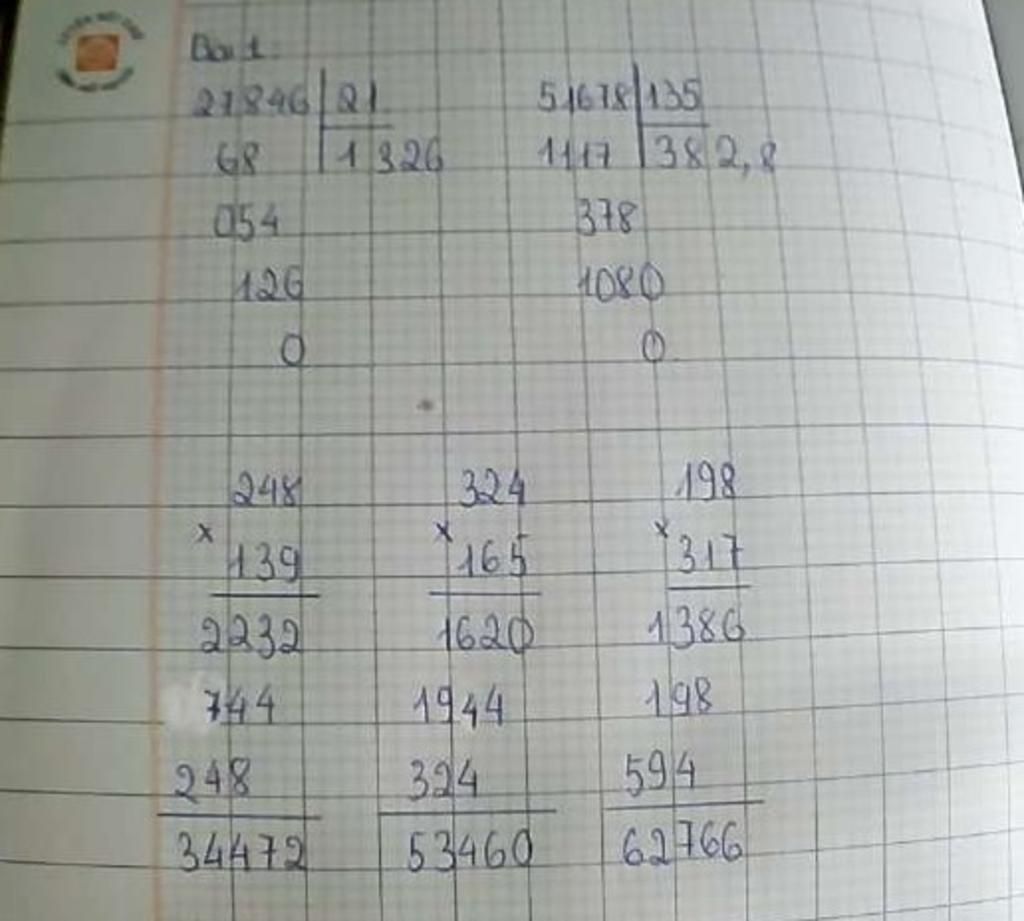 Bài 1
27846 21 51678 135
68 1326 1117 382,8
054 378
126 1080
0 0
248 324 198
x 139 x 165 x 317
2232 1620 1386
744 1944 198
248 324 594
34472 53460 62766